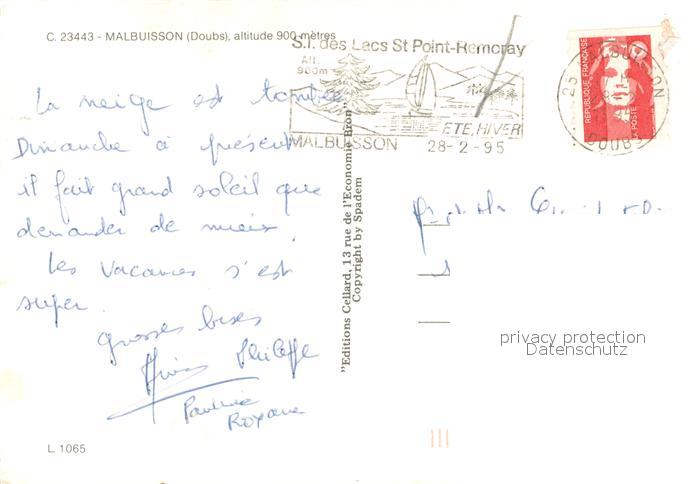 C. 23443 - MALBUISSON (Doubs), altitude 900 mètres
S.I. des Lacs St Point-Remoray
Alt.
900m
ETE, HIVER
MALBUISSON 28-2-95
25 MALBUISSON
DOUBS
REPUBLIQUE FRANÇAISE
LA POSTE
La neige est tombée
Dimanche à présent
il fait grand soleil que
demander de mieux.
Les vacances s'est
super.
grosses bises
Philippe
Pauline
Roxane
"Editions Cellard, 13 rue de l'Economie Bron"
Copyright by Spadem
privacy protection
Datenschutz
L 1065